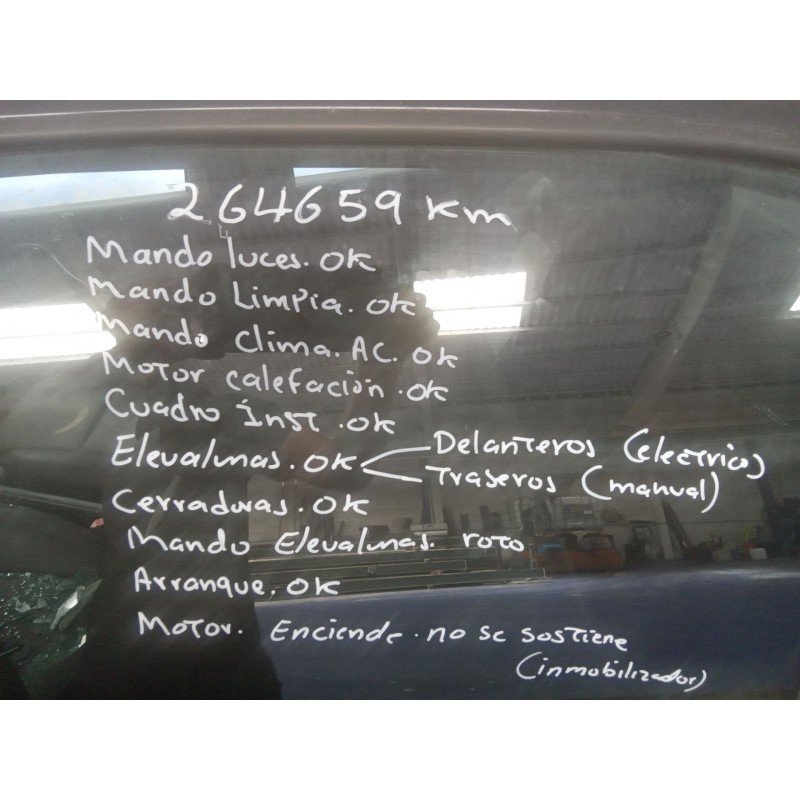 264659 km
Mando luces. OK
Mando Limpia. OK
Mando clima. AC. OK
Motor calefación. OK
Cuadro Inst. OK
Elevalunas. OK < Delanteros (electrico)
Traseros (manual)
Cerraduras. OK
Mando Elevalunas. roto
Arranque. OK
Motor. Enciende. no se sostiene
(inmobilizador)